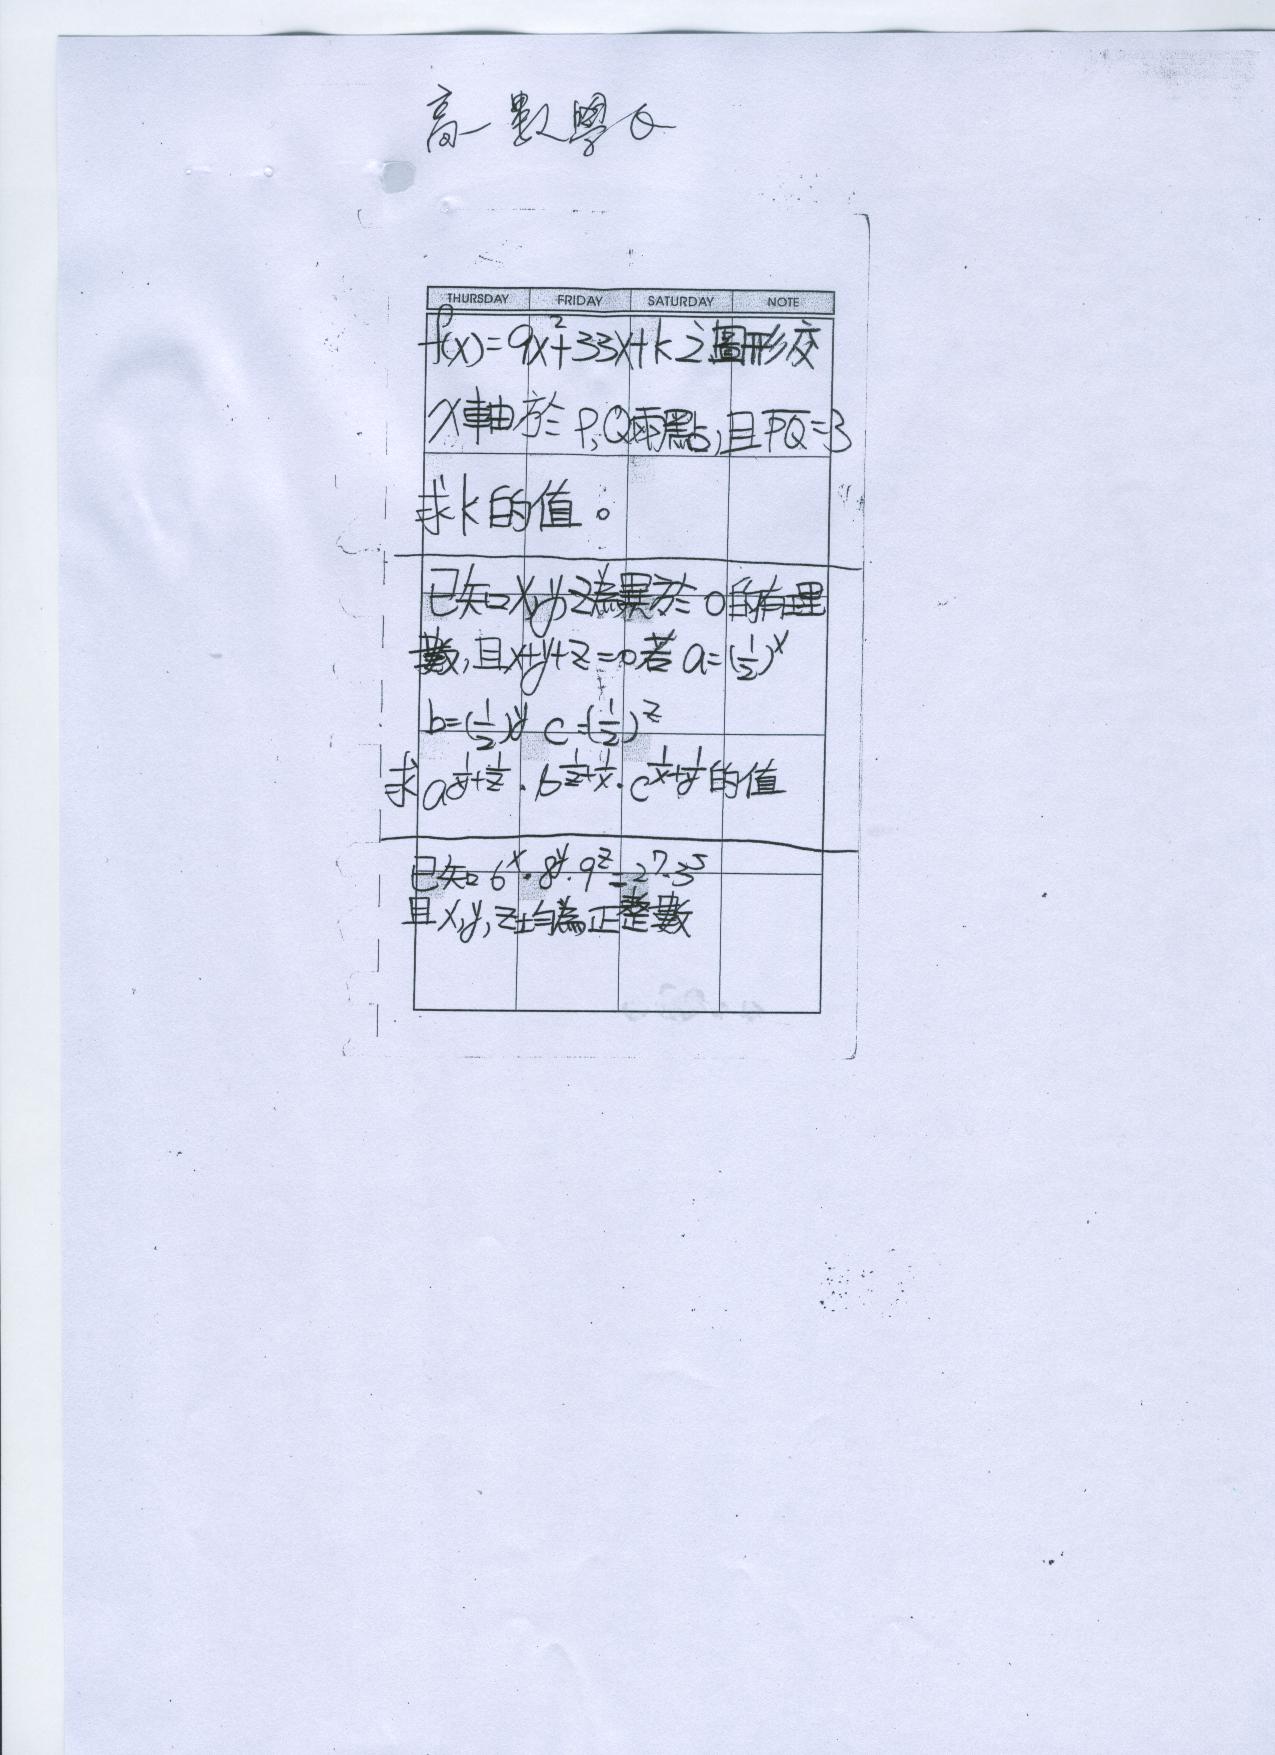 高一數學Q
THURSDAY FRIDAY SATURDAY NOTE
f(x)=9x²+33x+k之圖形交
x軸於P,Q兩點,且P̅Q̅=3
求k的值。
已知x,y,z為異於0的有理
數,且x+y+z=0若a=(1/2)^x
b=(1/2)^y c=(1/2)^z
求a^(1/y+1/z)·b^(1/z+1/x)·c^(1/x+1/y)的值
已知6^x·8^y·9^z=2^7·3^5
且x,y,z均為正整數